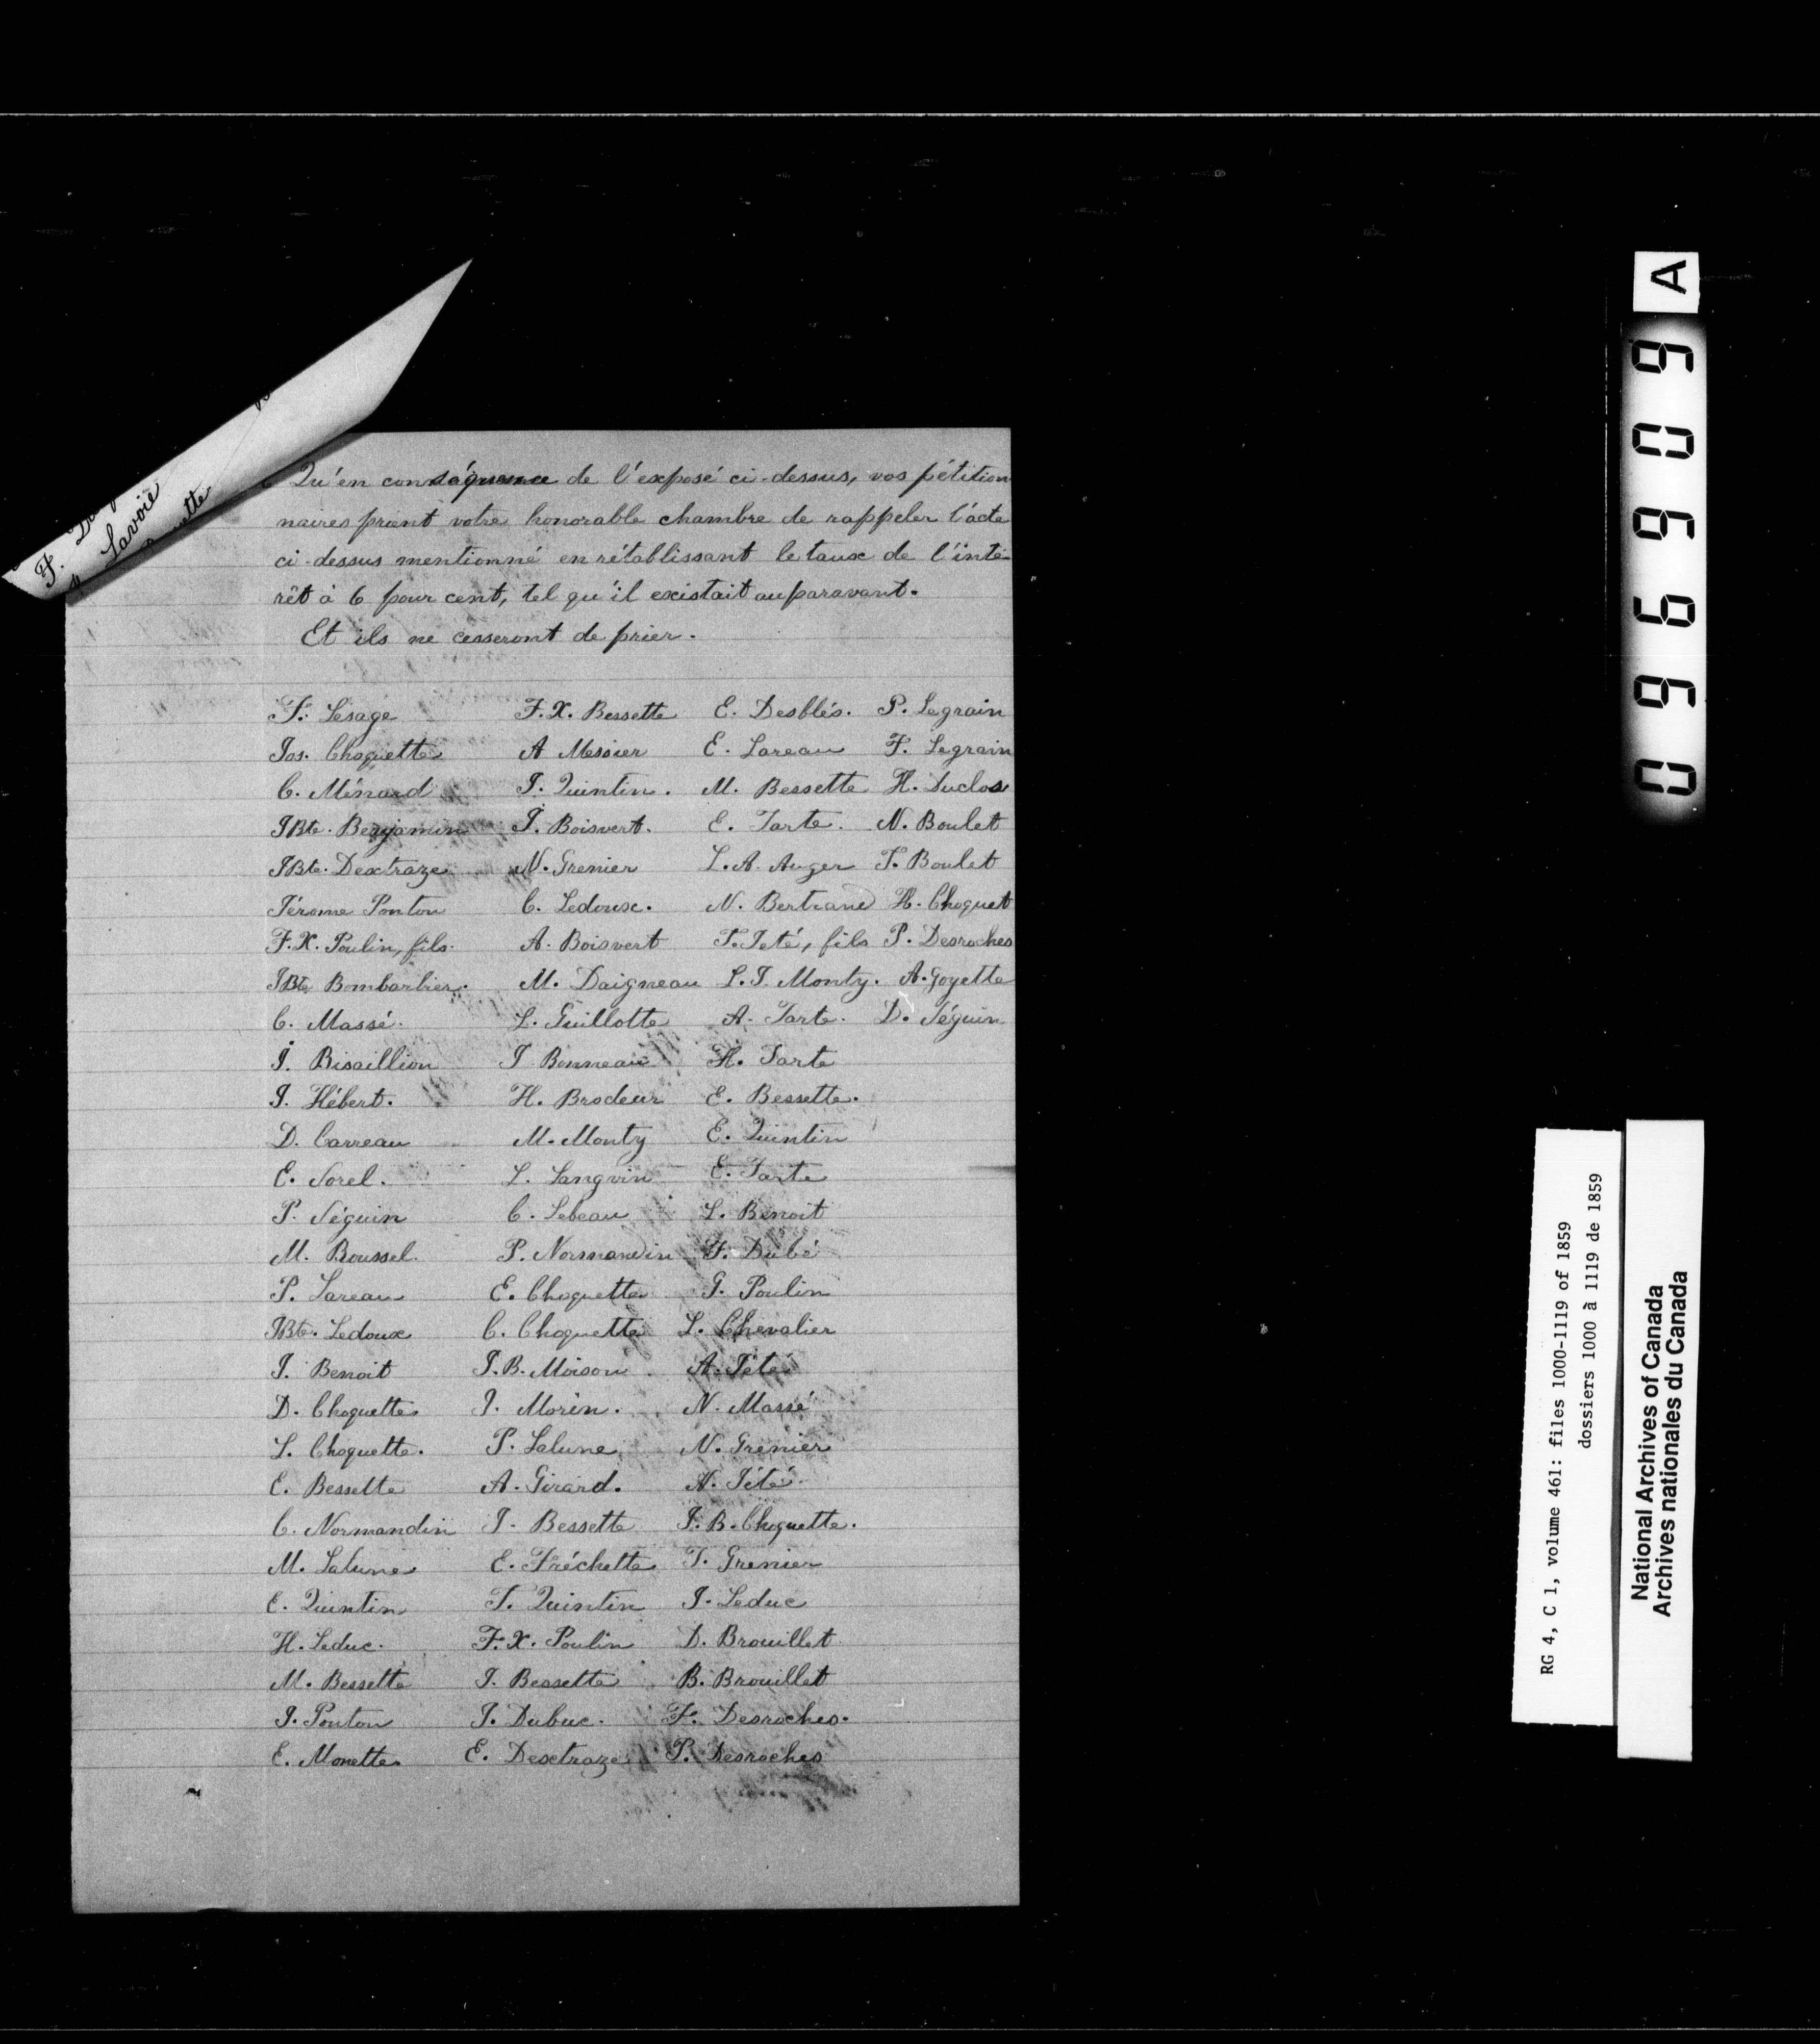 F.
Lavoie
Qu'en conséquence de l'exposé ci-dessus, vos pétition
naires prient votre honorable chambre de rappeler l'acte
ci-dessus mentionné en rétablissant le taux de l'inté
rêt à 6 pour cent, tel qu'il existait auparavant.
Et ils ne cesseront de prier.
T. Lesage F.X. Bessette E. Desblés. P. Legrain
Jos. Choquette A Messier E. Lareau F. Legrain
C. Ménard J. Quintin. M. Bessette H. Duclos
JBte. Benjamin J. Boisvert. E. Tarte. N. Boulet
JBte. Dextraze N. Grenier L.A. Auger T. Boulet
Jérome Ponton C. Ledoux. N. Bertrand H. Choquet
F.X. Poulin, fils. A. Boisvert T. Teté, fils P. Desroches
JBte Bombarbier. M. Daigneau L.J. Monty. A. Goyette
C. Massé. L. Guillotte A. Tarte. D. Séguin
J. Bisaillion J Bonneau H. Tarte
J. Hébert. H. Brodeur E. Bessette.
D. Carreau M. Monty E. Quintin
E. Sorel. L. Langvin E. Tarte
P. Séguin C. Lebeau L. Benoit
M. Boussel. P. Normandin F. Dubé
P. Lareau E. Choquette G. Poulin
JBte. Ledoux C. Choquette L. Chevalier
J. Benoit J.B. Moison A. Tété
D. Choquette J. Morin. N. Massé
L. Choquette. P. Lalune N. Grenier
E. Bessette A. Girard. N. Tété.
C. Normandin J. Bessette J.B. Choquette.
M. Lalune E. Fréchette T. Grenier
E. Quintin T. Quintin J. Leduc
H. Leduc. F.X. Poulin D. Brouillet
M. Bessette J. Bessette B. Brouillet
J. Ponton J. Dubuc. F. Desroches.
E. Monette E. Dextraze P. Desroches
096909 A
RG 4, C 1, volume 461: files 1000-1119 of 1859
dossiers 1000 à 1119 de 1859
National Archives of Canada
Archives nationales du Canada